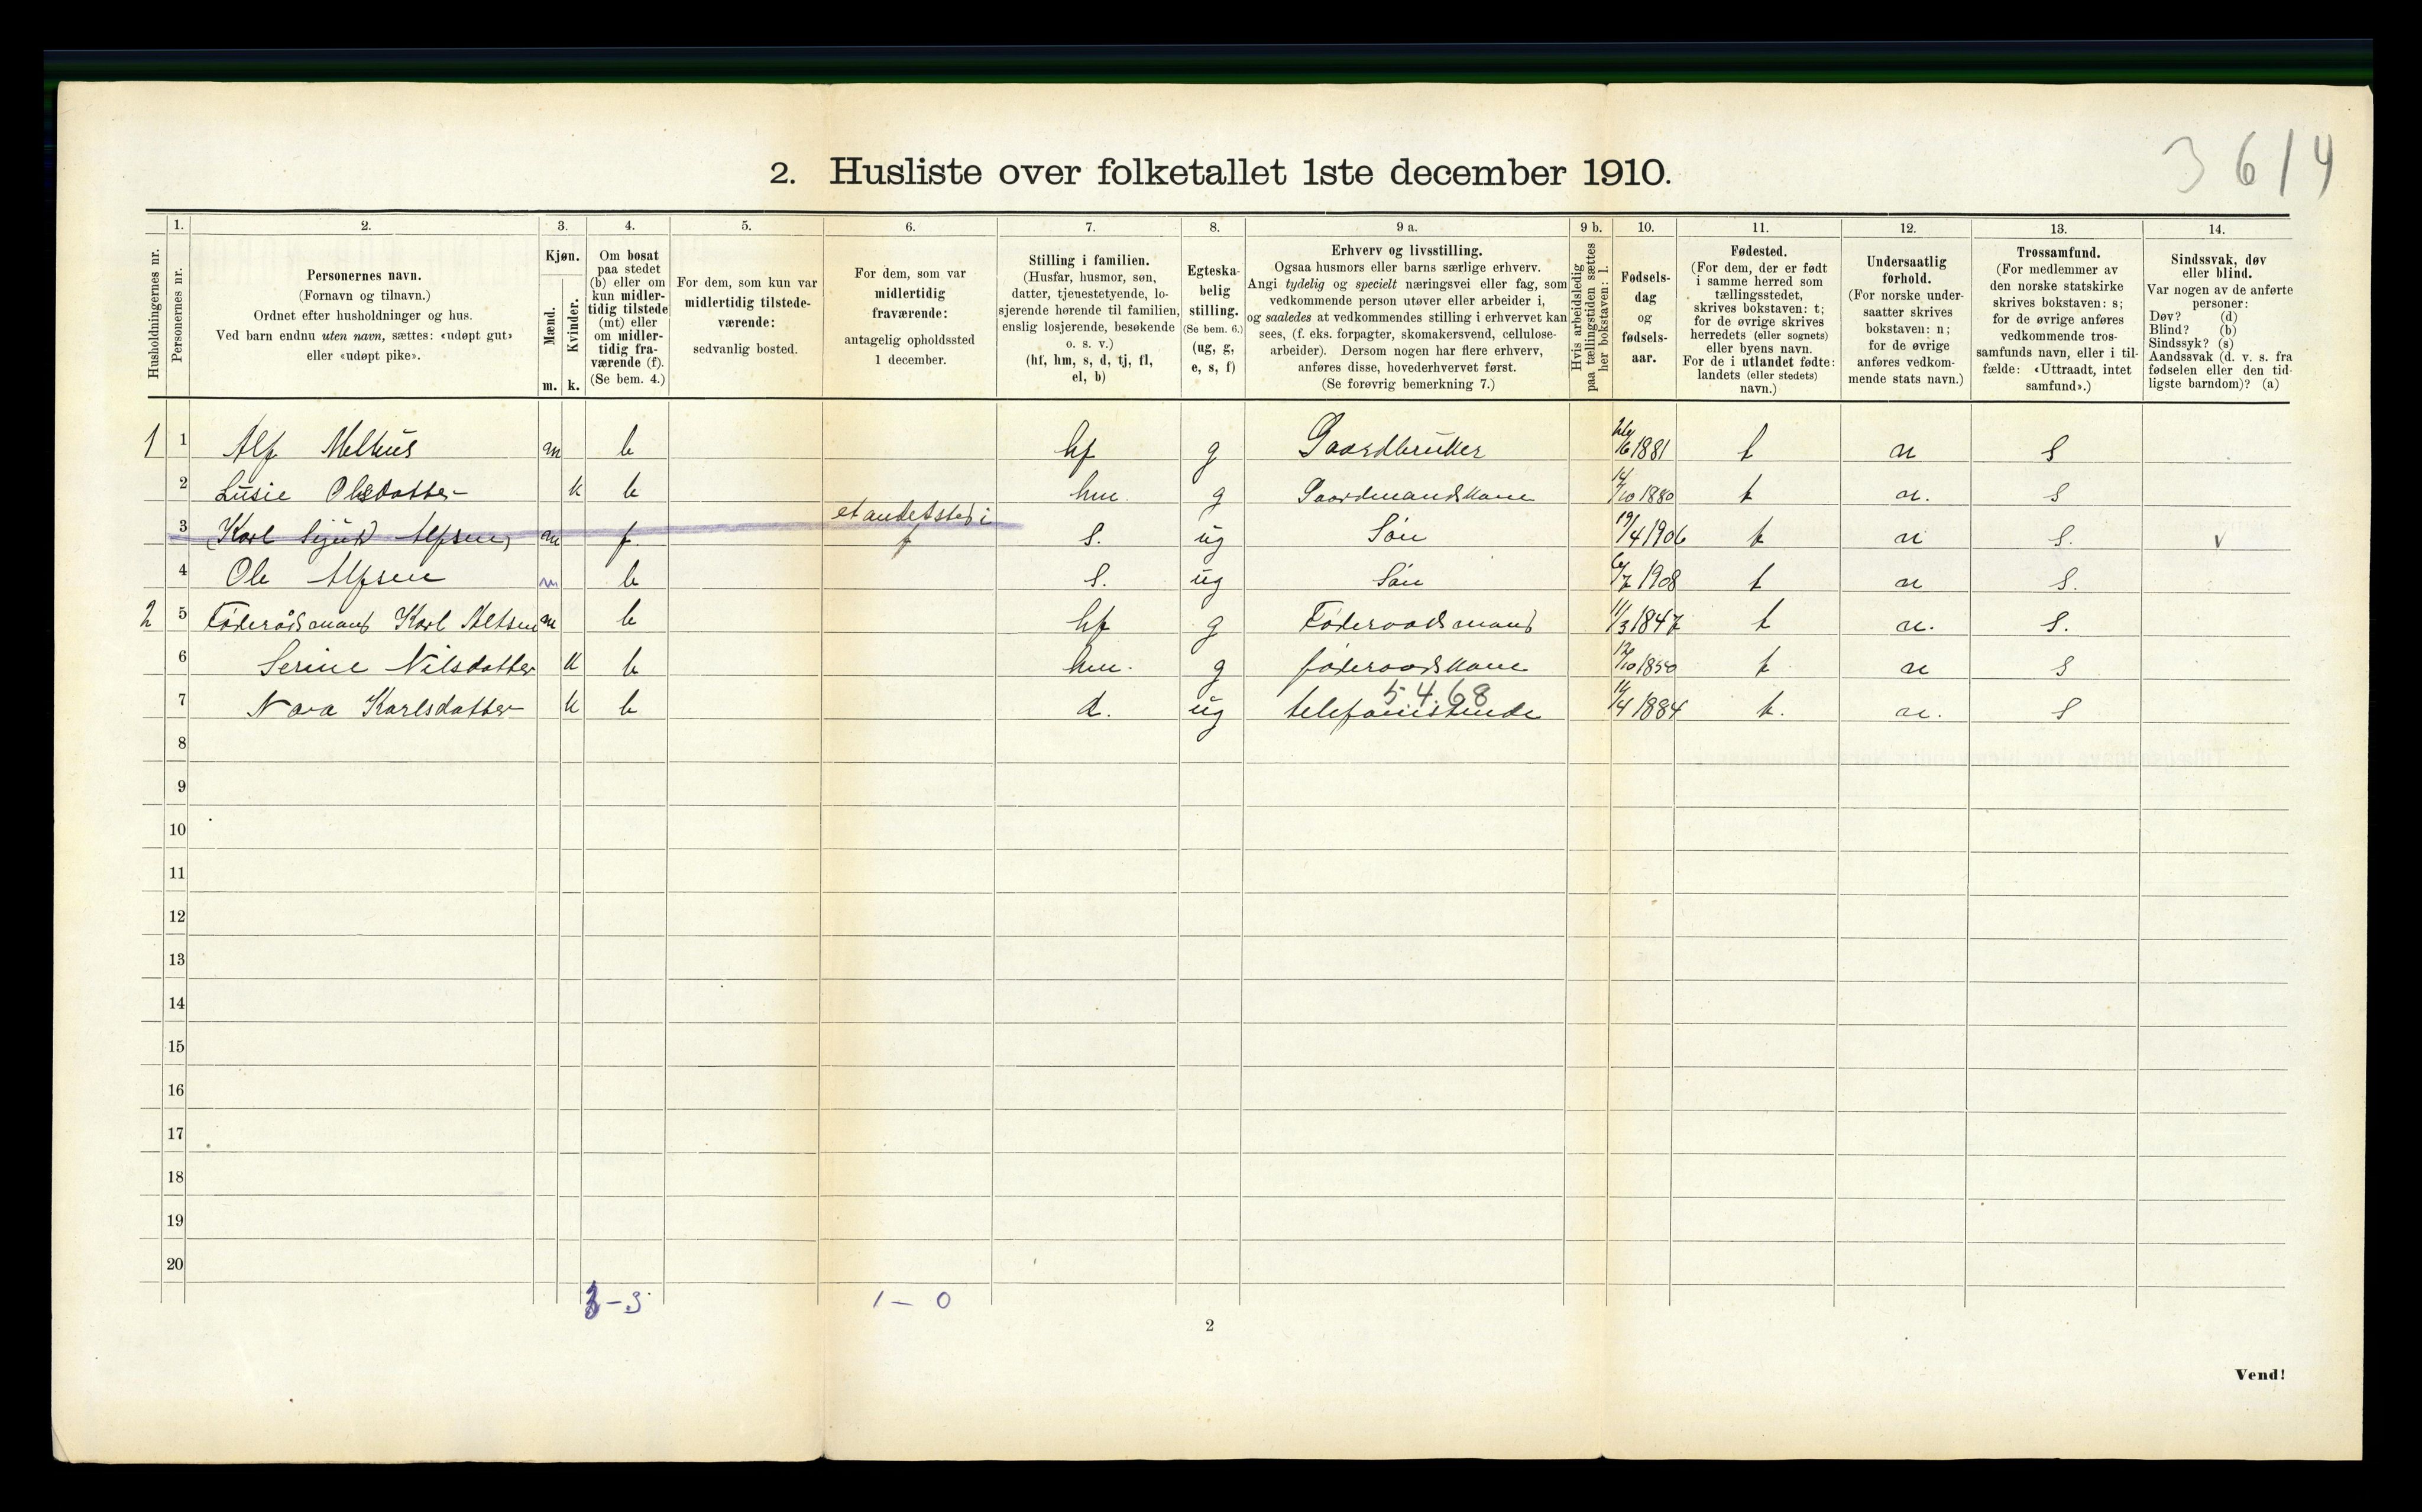 3614
2. Husliste over folketallet 1ste december 1910.
Husholdningernes nr.
1.
Personernes nr.
2.
Personernes navn.
(Fornavn og tilnavn.)
Ordnet efter husholdninger og hus.
Ved barn endnu uten navn, sættes: «udøpt gut»
eller «udøpt pike».
3.
Kjøn.
Mænd.
m.
Kvinder.
k.
4.
Om bosat
paa stedet
(b) eller om
kun midler-
tidig tilstede
(mt) eller
om midler-
tidig fra-
værende (f).
(Se bem. 4.)
5.
For dem, som kun var
midlertidig tilstede-
værende:
sedvanlig bosted.
6.
For dem, som var
midlertidig
fraværende:
antagelig opholdssted
1 december.
7.
Stilling i familien.
(Husfar, husmor, søn,
datter, tjenestetyende, lo-
sjerende hørende til familien,
enslig losjerende, besøkende
o. s. v.)
(hf, hm, s, d, tj, fl,
el, b)
8.
Egteska-
belig
stilling.
(Se bem. 6.)
(ug, g,
e, s, f)
9 a.
Erhverv og livsstilling.
Ogsaa husmors eller barns særlige erhverv.
Angi tydelig og specielt næringsvei eller fag, som
vedkommende person utøver eller arbeider i,
og saaledes at vedkommendes stilling i erhvervet kan
sees, (f. eks. forpagter, skomakersvend, cellulose-
arbeider). Dersom nogen har flere erhverv,
anføres disse, hovederhvervet først.
(Se forøvrig bemerkning 7.)
9 b.
Hvis arbeidsledig
paa tællingstiden sættes
her bokstaven: l.
10.
Fødsels-
dag
og
fødsels-
aar.
11.
Fødested.
(For dem, der er født
i samme herred som
tællingsstedet,
skrives bokstaven: t;
for de øvrige skrives
herredets (eller sognets)
eller byens navn.
For de i utlandet fødte:
landets (eller stedets)
navn.)
12.
Undersaatlig
forhold.
(For norske under-
saatter skrives
bokstaven: n;
for de øvrige
anføres vedkom-
mende stats navn.)
13.
Trossamfund.
(For medlemmer av
den norske statskirke
skrives bokstaven: s;
for de øvrige anføres
vedkommende tros-
samfunds navn, eller i til-
fælde: «Uttraadt, intet
samfund».)
14.
Sindssvak, døv
eller blind.
Var nogen av de anførte
personer:
Døv? (d)
Blind? (b)
Sindssyk? (s)
Aandssvak (d. v. s. fra
fødselen eller den tid-
ligste barndom)? (a)
1 1 Alf Melhus m b hf g Gaardbruker 6 1881 t n S
2 Lusie Olsdatter k b hm. g Gaardmandskone 14/10 1880 t n. S
et andet sted i
3 (Karl Sigurd Alfsen) m f. t S. ug Søn 19/4 1906 t n S. v
4 Ole Alfsen m b S. ug Søn 6/7 1908 t n S.
2 5 Føderådsmand Karl Alfsen m b hf g Føderaadsmand 11/3 1847 t n. S.
6 Serine Nilsdatter k b hm. g føderaadskone 12/10 1850 t n S
5.4.68
7 Nora Karlsdatter k b d. ug telefonistinde 14/4 1884 t. n. S
8
9
10
11
12
13
14
15
16
17
18
19
20
3-3 1-0
2
Vend!